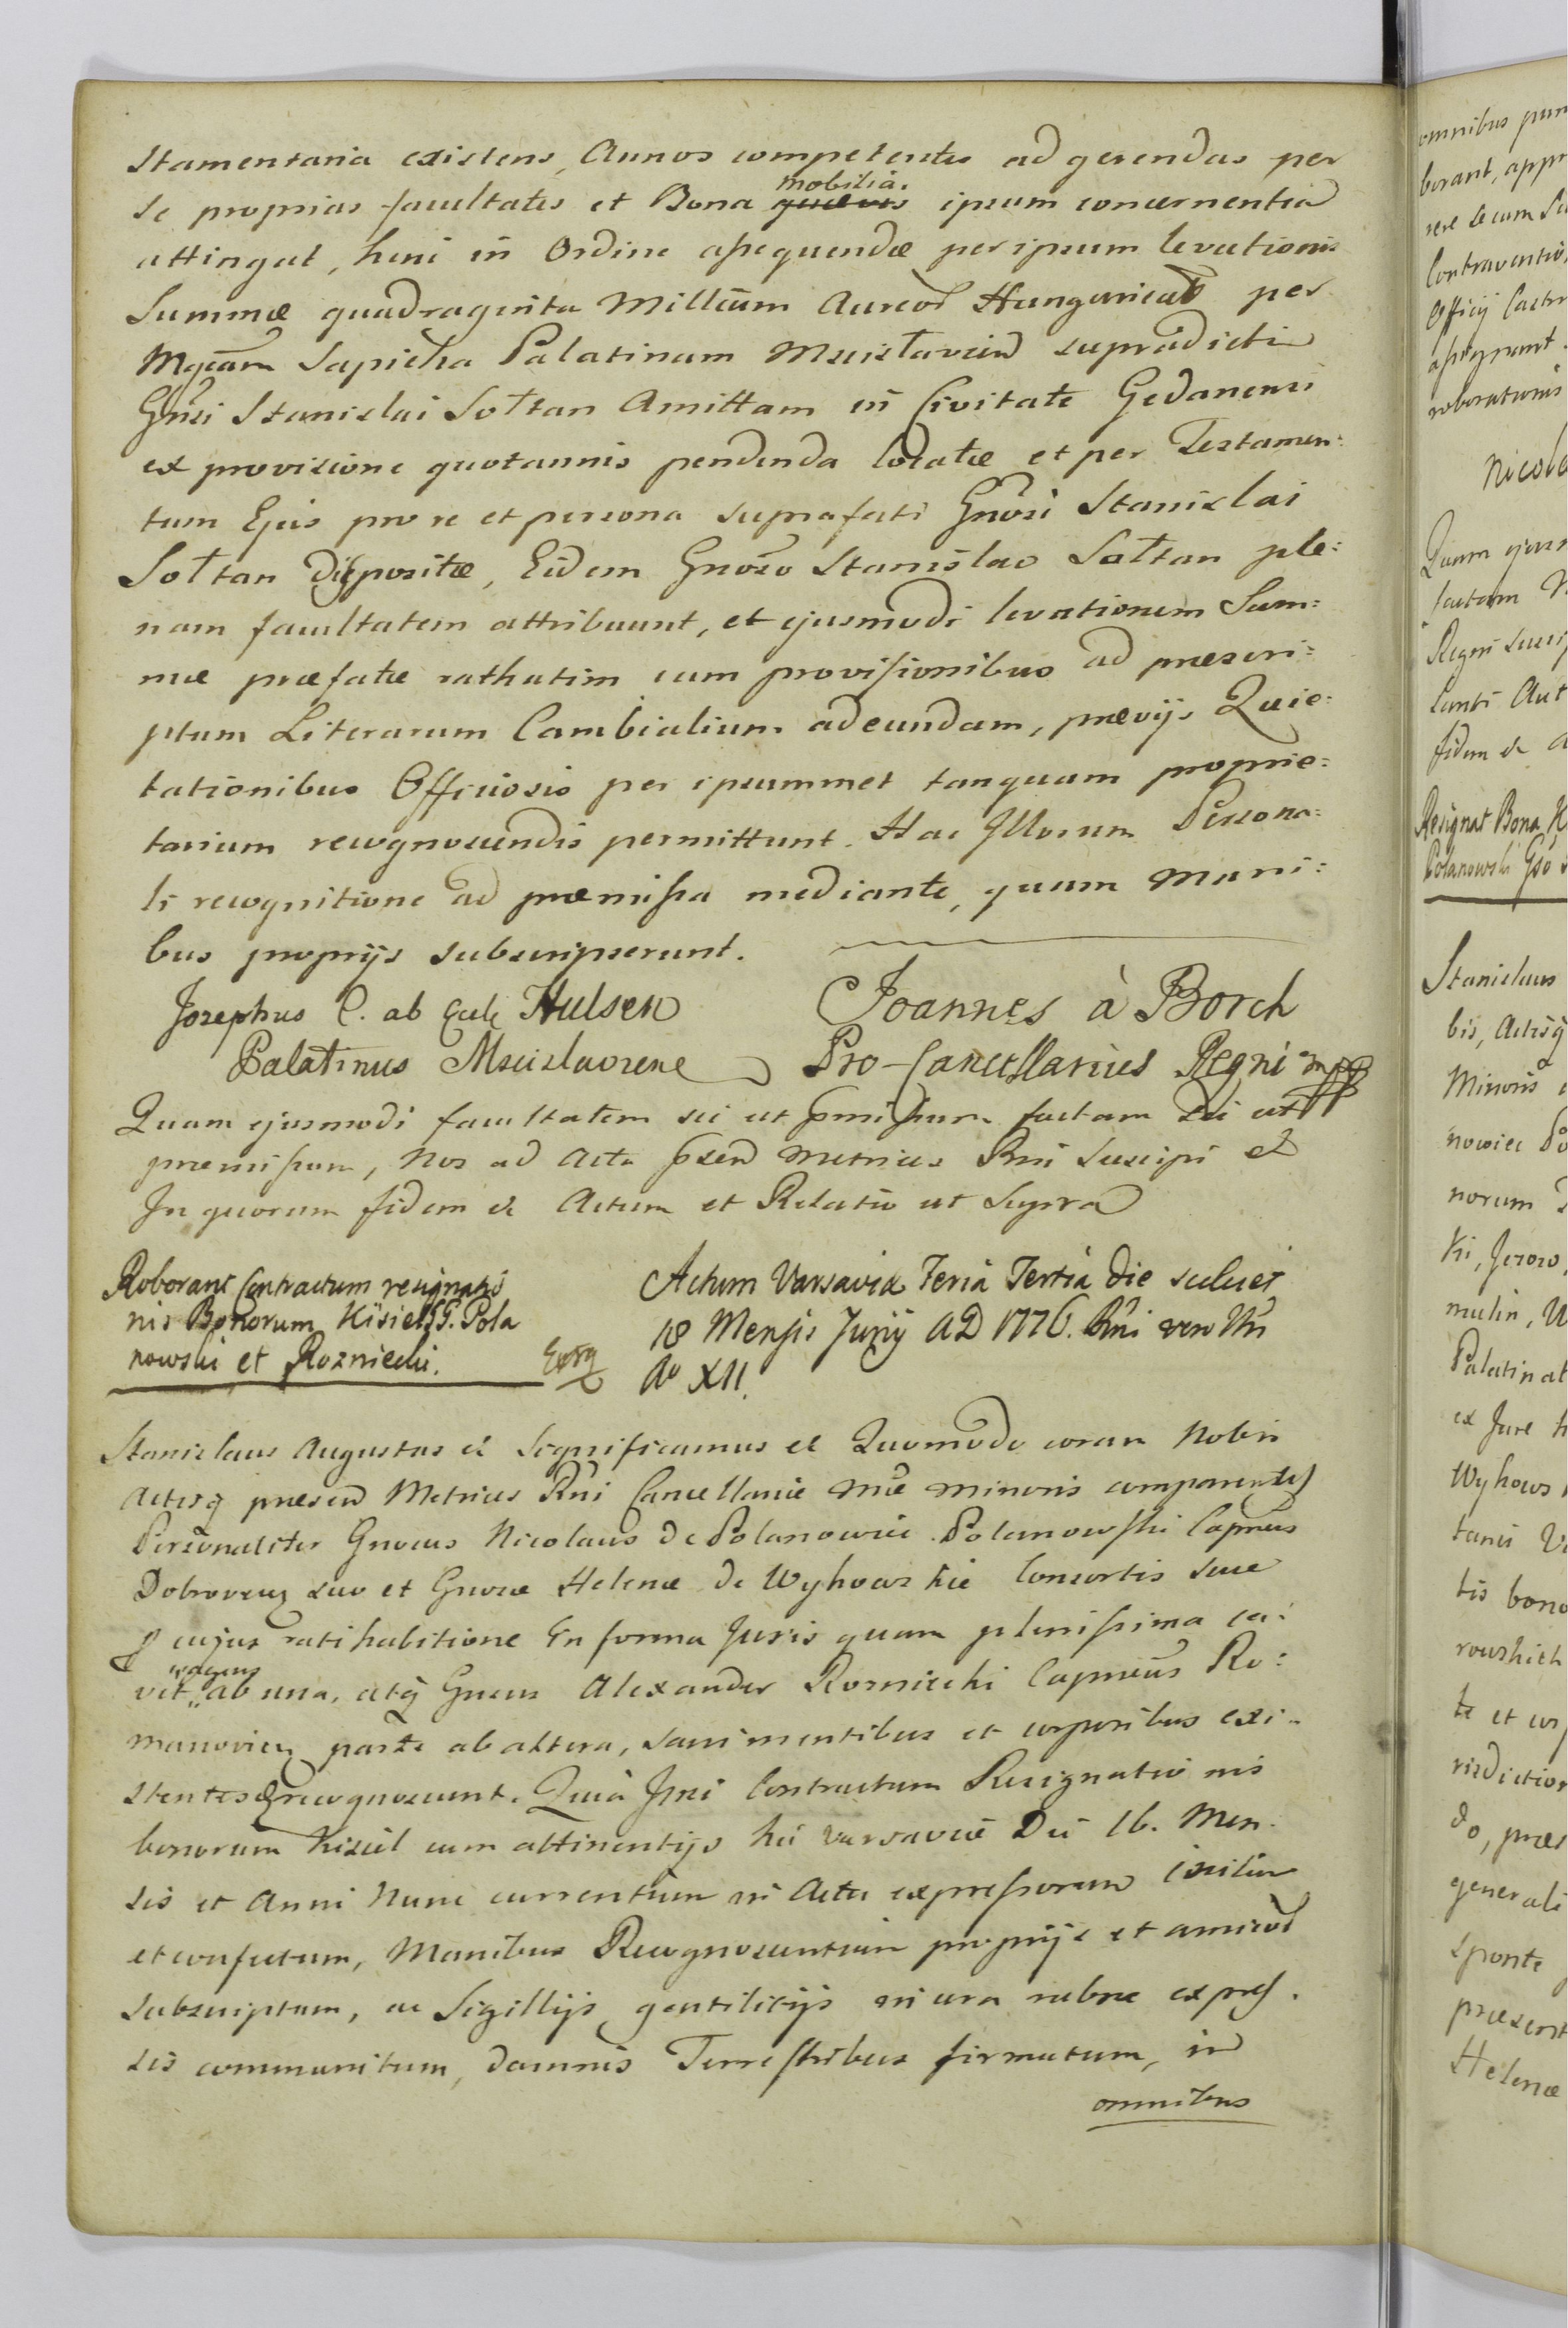 stamentaria existens, Annos competentes ad gerendas per
se proprias facultates et Bona mobilia. ipsum concernentia
attingat, hinc in Ordine assequendæ per ipsum levationis
Summæ quadraginta Millium Aureor Hungarical per
Mgcam Sapieha Palatinam Mscislavien supradicti
Gnsi Stanislai Sołtan Amittam in Civitate Gedanensi
ex provisione quotannis pendenda locatæ et per Testamen:
tum Ejus pro re et persona suprafati Gnosi Stanislai
Sołtan dispositæ, Eidem Gnoso Stanislao Sołtan ple:
nam facultatem attribuunt, et ejusmodi levationem Sum:
mæ præfatæ rathatim cum provisionibus ad præscri:
ptum Literarum Cambialium adeundam, prævijs Quie:
tationibus Officiosis per ipsummet tanquam proprie:
tarium recognoscendis permittunt. Hac Illorum Persona:
li recognitione ad præmissa mediante, quam Mani:
bus proprijs subscripserunt.
Josephus C. ab Hulsen
Joannes à Borch
Palatinus Mscislavsene
Pro-Cancellarius Regni mpp
Quam ejusmodi facultatem sic ut pmissum factam sic ut
præmissum, Nos ad Acta psen Metrices Rni Suscipi et
In quorum fidem et Actum et Relatio ut Supra
Roborant Contractum resignatio
nis Bonorum Kisiel GG. Pola
nowski et Rozniecki.
Actum Varsaviæ Feria Tertia die scilicet
18 Mensis Junij AD 1776. Rni vero Nri
Ao XII.
Stanislaus Augustus et Significamus et Quomodo coram Nobis
Actisq præsen Metrices Rni Cancellariæ Nræ minoris comparentes
Personaliter Gnosus Nicolaus de Polanowice Polanowski Capneus
Dobrovien suo et Gnosæ Helenæ de Wyhowskie Consortis suæ
p cujus ratihabitione in forma Juris quam plenissima ca:
vet ab una, atq Gnsus Alexander Rozniecki Capneus Ro:
manovien parte ab altera, sani mentibus et corporibus exi:
stentes recognoverunt. Quia Ipsi Contractum Resignatio nis
bonorum Kisiel cum attinentijs hic Varsaviæ Die 16. Men:
sis et Anni Nunc currentium in Actu expressorum initum
et confectum, Manibus Recognoscentium proprijs et amicor
subscriptum, ac Sigillijs gentilitijs in cera rubra expres.
sis communitum, damnis Terrestribus firmatum, in
omnibus
omnibus pun
borant, appr
Contraventio,
Officij Castr
assignant.
roborationis
Nicola
Quam ejus
factam N
Regni susci
Resignat Bona K
Polanowski
Stanislaus
bis, Actisq
Minoris
nowice Po
norum
ki, Jezoro,
mulin, W
Palatinat
ex Jure h
Wyhows
tis bono
rowskich
te et cor
risdiction
do, præs
generali
sponte
præsent
Helenæ